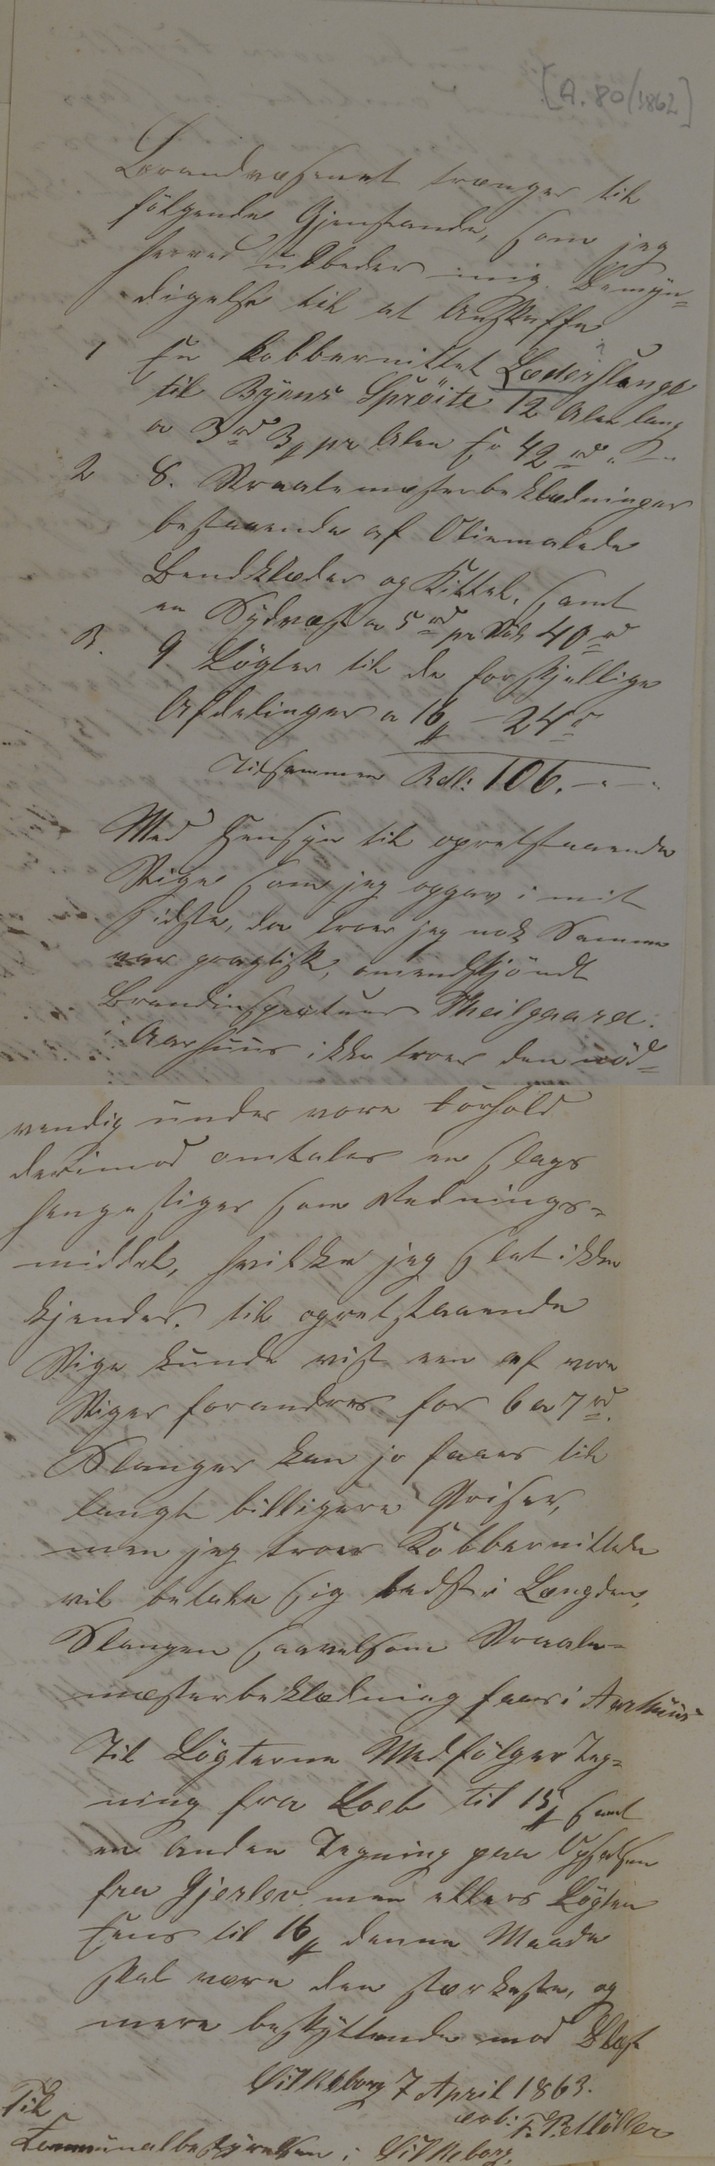 [A. 80/1862]
Brandvæsenet trænger til
følgende Gjenstande, som jeg
herved udbeder mig Bemyn=
digelse til at Anskaffe
1 En kobbernittet Læderslange
til Byens Sprøite 12 Alen lang
a 3 rd 3 pr Alen 42 rd
2 8. Straalemesterbeklædninger
bestaaende af Oliemalede
Benklæder og Kittel, samt
en Sydvest a 5 rd pr Stk 40 rd
3. 9 Løgter til de forskjellige
Afdelinger a 16 - 24
Tilsammen Rdl: 106. - -
Med Hensyn til opretstaaende
Stige som jeg opgav i mit
sidste, da troer jeg nok Samme
var practisk, omendskjøndt
Brandinspecteur Theilgaard.
i Aarhuus ikke troer den nød=
vendig under vore Forhold
derimod omtales en slags
hengestiger som Rednings=
middel, hvilke jeg slet ikke
kjender. til opretstaaende
Stige kunde vist een af vore
Stiger forandres for 6 a 7 rd.
Slanger kan jo faaes til
langt billigere Priser,
men jeg troer Kobbernittede
vil betale sig bedst i Længden,
Slangen saavelsom Straale=
mesterbeklædning faaes i Aarhuus
Til Løgterne Medfølger Teg=
ning fra Loeb til 15 samt
en anden Tegning paa
fra Gjerlev men ellers Løgten
til 16 denne Maade
skal være den stærkeste, og
mere beskyttende mod Blæst
Silkeborg 7 April 1863.
erb: F. P. Møller
Til
Communalbestyrelsen i Silkeborg.